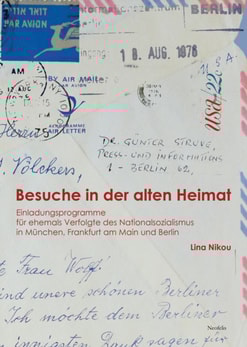 Informationszentrum
BERLIN
דואר אויר
PAR AVION
18. AUG. 1976
BY AIR MAIL
PAR AVION
AM
AEROGRAMME
AIR LETTER
USA 22c
DR. GÜNTER STRUVE,
PRESS- UND INFORMATIONS
1 - BERLIN 62,
Herrn
Völcken,
Besuche in der alten Heimat
Einladungsprogramme
für ehemals Verfolgte des Nationalsozialismus
in München, Frankfurt am Main und Berlin
Lina Nikou
te Frau Wolff!
sind unsere schönen Berliner
Ich möchte dem Berliner
innigsten Dank sagen für
Neofelis